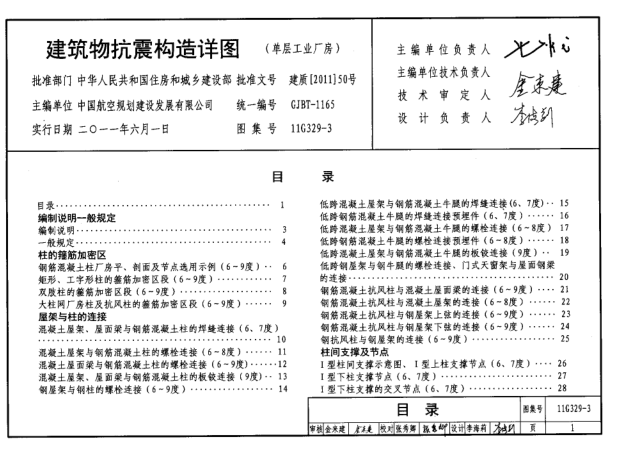 建筑物抗震构造详图 (单层工业厂房)
批准部门 中华人民共和国住房和城乡建设部 批准文号 建质[2011]50号
主编单位 中国航空规划建设发展有限公司 统一编号 GJBT-1165
实行日期 二〇一一年六月一日 图集号 11G329-3
主编单位负责人
主编单位技术负责人
技术审定人
设计负责人
目录
目录 1
编制说明一般规定
编制说明 3
一般规定 4
柱的箍筋加密区
钢筋混凝土柱厂房平、剖面及节点选用示例(6~9度) 6
矩形、工字形柱的箍筋加密区段(6~9度) 7
双肢柱的箍筋加密区段(6~9度) 8
大柱网厂房柱及抗风柱的箍筋加密区段(6~9度) 9
屋架与柱的连接
混凝土屋架、屋面梁与钢筋混凝土柱的焊缝连接(6、7度)
10
混凝土屋架与钢筋混凝土柱的螺栓连接(6~8度) 11
混凝土屋面梁与钢筋混凝土柱的螺栓连接(6~9度) 12
混凝土屋架、屋面梁与钢筋混凝土柱的板铰连接(9度) 13
钢屋架与钢柱的螺栓连接(6~9度) 14
低跨混凝土屋架与钢筋混凝土牛腿的焊缝连接(6、7度) 15
低跨钢筋混凝土牛腿的焊缝连接预埋件(6、7度) 16
低跨混凝土屋架与钢筋混凝土牛腿的螺栓连接(6~8度) 17
低跨钢筋混凝土牛腿的螺栓连接预埋件(6~8度) 18
低跨混凝土屋架与钢筋混凝土牛腿的板铰连接(9度) 19
低跨钢屋架与钢牛腿的螺栓连接、门式天窗架与屋面钢梁
的连接 20
钢筋混凝土抗风柱与混凝土屋面梁的连接(6~9度) 21
钢筋混凝土抗风柱与混凝土屋架的连接(6~8度) 22
钢筋混凝土抗风柱与钢屋架上弦的连接(6~9度) 23
钢筋混凝土抗风柱与钢屋架下弦的连接(6~9度) 24
钢抗风柱与钢屋架的连接(6~9度) 25
柱间支撑及节点
I型柱间支撑示意图、I型上柱支撑节点(6、7度) 26
I型下柱支撑节点(6、7度) 27
I型下柱支撑的交叉节点(6、7度) 28
目录 图集号 11G329-3
审核 金来建 校对 张秀娜 设计 李海莉 页 1